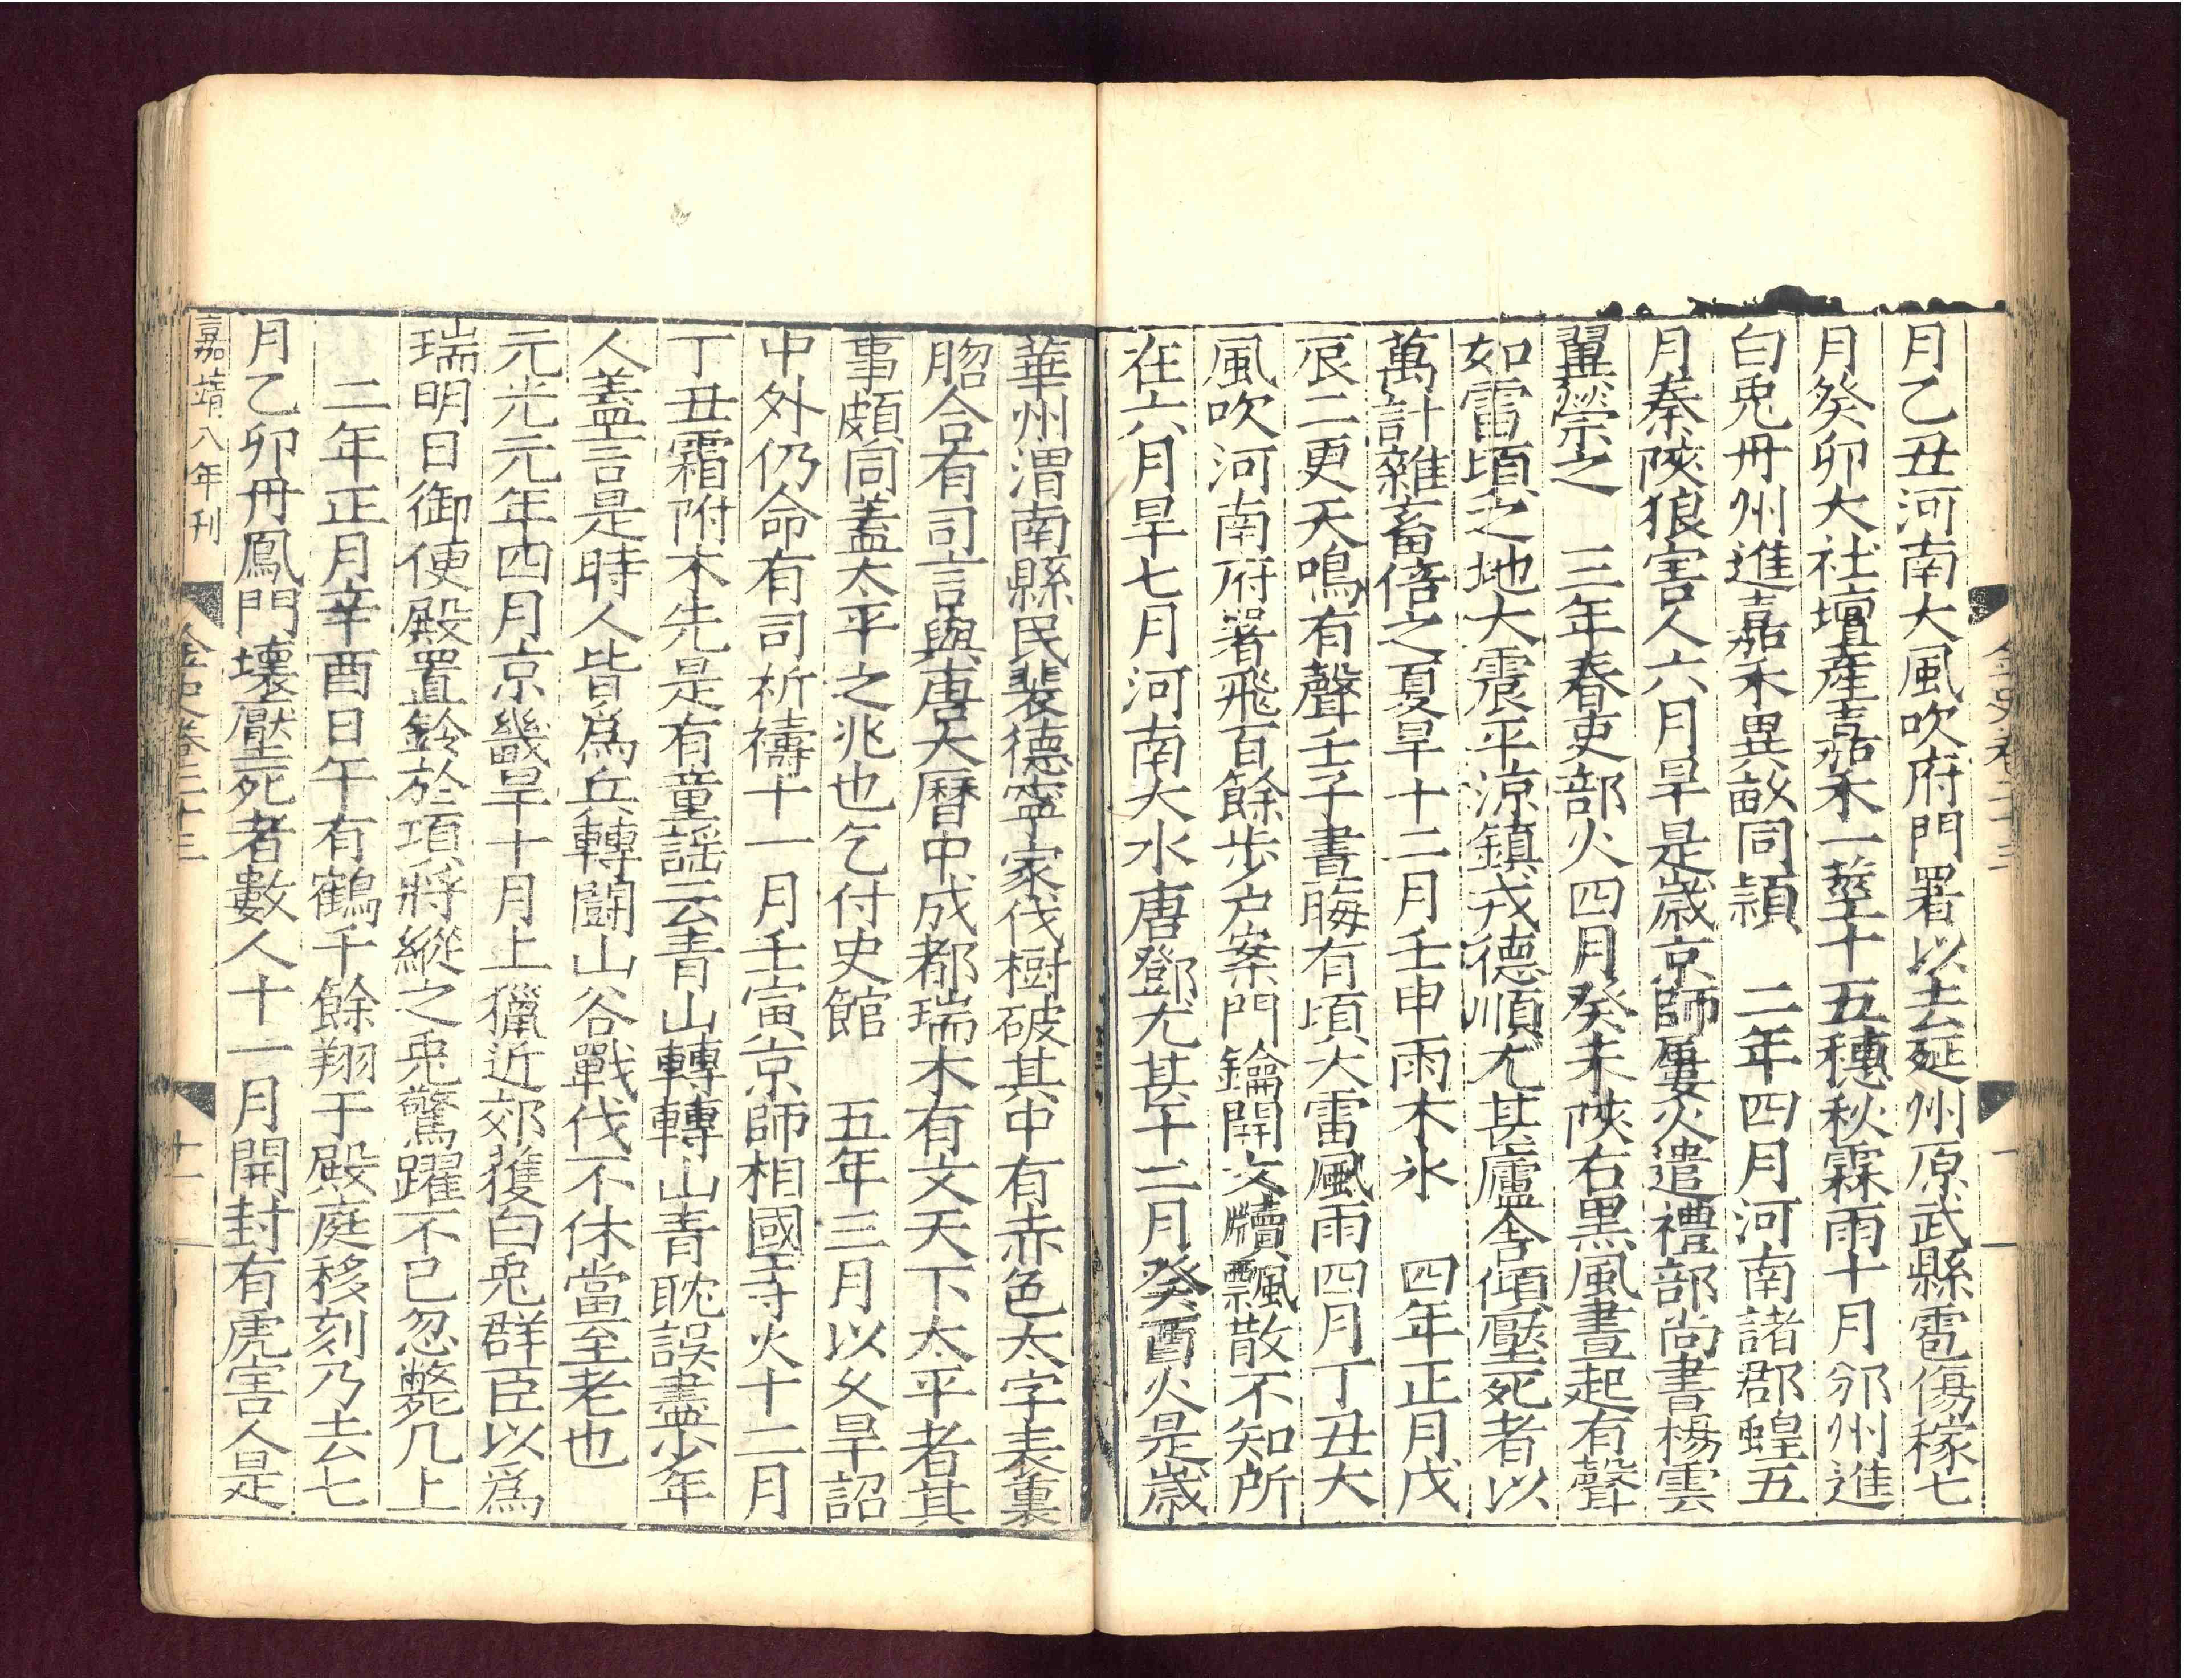 月乙丑河南大風吹府門署以去延州原武縣雹傷稼七
月癸卯大社壇産嘉禾一莖十五穗秋霖雨十月邠州進
白兎丹州進嘉禾異畝同頴　二年四月河南諸郡蝗五
月秦陝狼害人六月旱是歳京師屢火遣禮部尚書楊雲
翼禜之　三年春吏部火四月癸未陝右黒風晝起有聲
如雷頃之地大震平涼鎮戎德順尤甚廬舎傾壓死者以
萬計雜畜倍之夏旱十二月壬申雨木氷　四年正月戊
辰二更天鳴有聲壬子晝晦有頃大雷風雨四月丁丑大
風吹河南府署飛百餘歩户案門鑰開文牘飄散不知所
在六月旱七月河南大水唐鄧尤甚十二月癸酉火是歳
華州渭南縣民裴德寧家伐樹破其中有赤色太字表裏
脗合有司言與唐大曆中成都瑞木有文天下太平者其
事頗同蓋太平之兆也乞付史館　五年三月以乆旱詔
中外仍命有司祈禱十一月壬寅京師相國寺火十二月
丁丑霜附木先是有童謡云青山轉轉山青耽誤盡少年
人蓋言是時人皆爲兵轉鬬山谷戰伐不休當至老也
元光元年四月京畿旱十月上獵近郊獲白兎群臣以爲
瑞明日御便殿置鈴於項將縱之兎驚躍不已忽斃几上
二年正月辛酉日午有鶴千餘翔于殿庭移刻乃去七
月乙卯丹鳳門壞壓死者數人十一月開封有虎害人是
嘉靖八年刊
金史卷二十三
十一